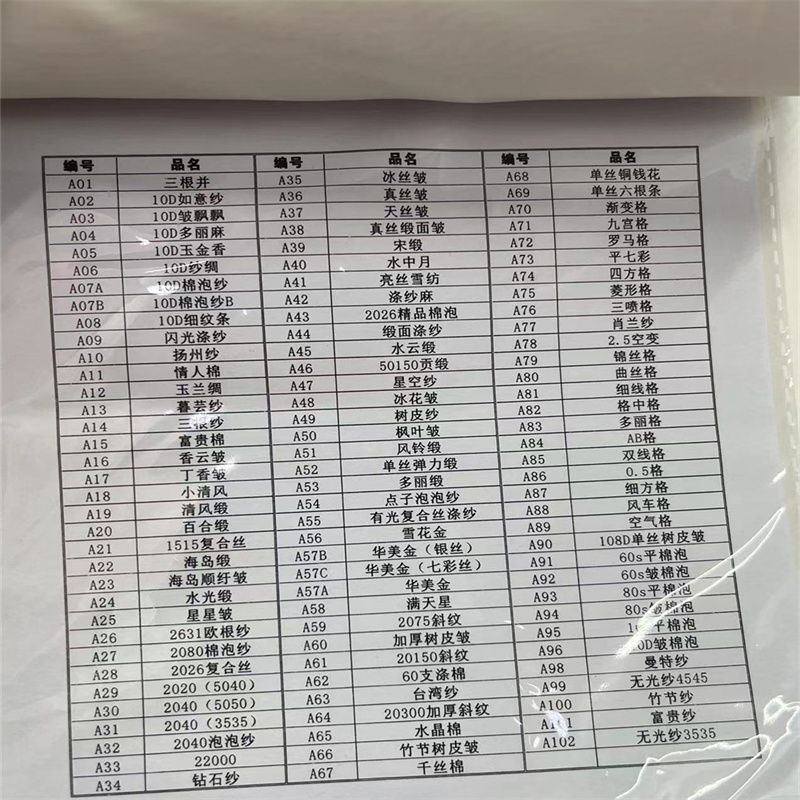 编号 品名 编号 品名 编号 品名
A01 三根并 A35 冰丝皱 A68 单丝铜钱花
A02 10D如意纱 A36 真丝皱 A69 单丝六根条
A03 10D皱飘飘 A37 天丝皱 A70 渐变格
A04 10D多丽麻 A38 真丝缎面皱 A71 九宫格
A05 10D玉金香 A39 宋缎 A72 罗马格
A06 10D纱绸 A40 水中月 A73 平七彩
A07A 10D棉泡纱 A41 亮丝雪纺 A74 四方格
A07B 10D棉泡纱B A42 涤纱麻 A75 菱形格
A08 10D细纹条 A43 2026精品棉泡 A76 三喷格
A09 闪光涤纱 A44 缎面涤纱 A77 肖兰纱
A10 扬州纱 A45 水云缎 A78 2.5空变
A11 情人棉 A46 50150贡缎 A79 锦丝格
A12 玉兰绸 A47 星空纱 A80 曲丝格
A13 暮芸纱 A48 冰花皱 A81 细线格
A14 三根纱 A49 树皮纱 A82 格中格
A15 富贵棉 A50 枫叶皱 A83 多丽格
A16 香云皱 A51 风铃缎 A84 AB格
A17 丁香皱 A52 单丝弹力缎 A85 双线格
A18 小清风 A53 多丽缎 A86 0.5格
A19 清风缎 A54 点子泡泡纱 A87 细方格
A20 百合缎 A55 有光复合丝涤纱 A88 风车格
A21 1515复合丝 A56 雪花金 A89 空气格
A22 海岛缎 A57B 华美金（银丝） A90 108D单丝树皮皱
A23 海岛顺纡皱 A57C 华美金（七彩丝） A91 60s平棉泡
A24 水光缎 A57A 华美金 A92 60s皱棉泡
A25 星星皱 A58 满天星 A93 80s平棉泡
A26 2631欧根纱 A59 2075斜纹 A94 80s皱棉泡
A27 2080棉泡纱 A60 加厚树皮皱 A95 平棉泡
A28 2026复合丝 A61 20150斜纹 A96 皱棉泡
A29 2020（5040） A62 60支涤棉 A98 曼特纱
A30 2040（5050） A63 台湾纱 A99 无光纱4545
A31 2040（3535） A64 20300加厚斜纹 A100 竹节纱
A32 2040泡泡纱 A65 水晶棉 A101 富贵纱
A33 22000 A66 竹节树皮皱 A102 无光纱3535
A34 钻石纱 A67 千丝棉